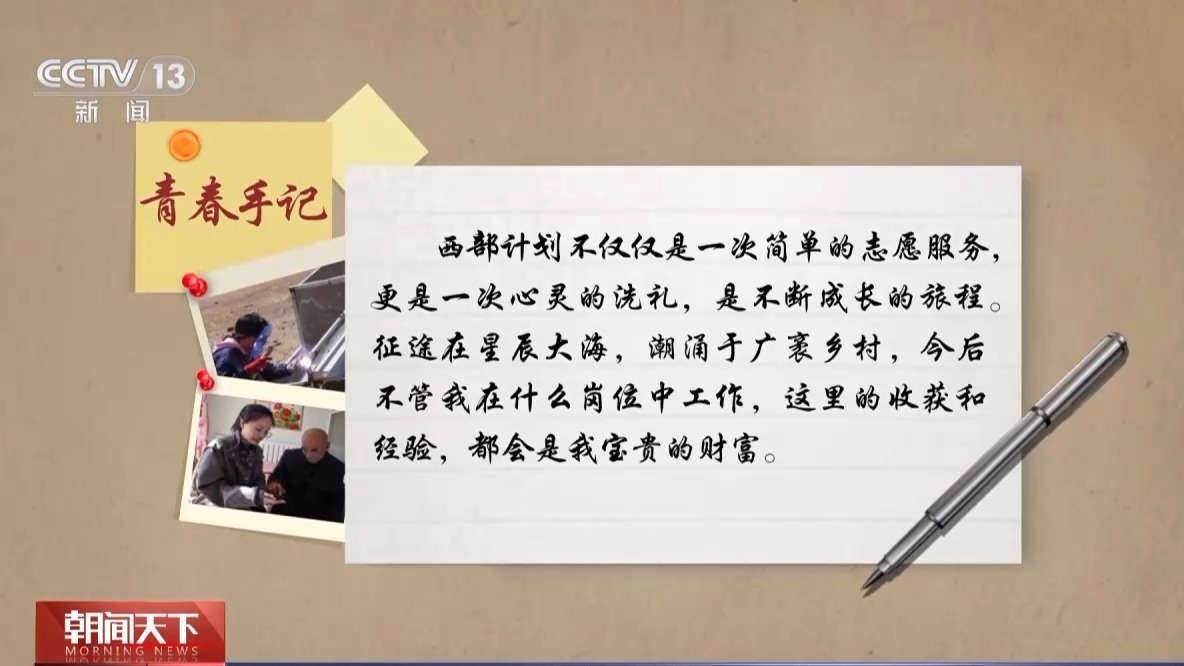 CCTV 13
新闻
青春手记
西部计划不仅仅是一次简单的志愿服务，
更是一次心灵的洗礼，是不断成长的旅程。
征途在星辰大海，潮涌于广袤乡村，今后
不管我在什么岗位中工作，这里的收获和
经验，都会是我宝贵的财富。
朝闻天下
MORNING NEWS